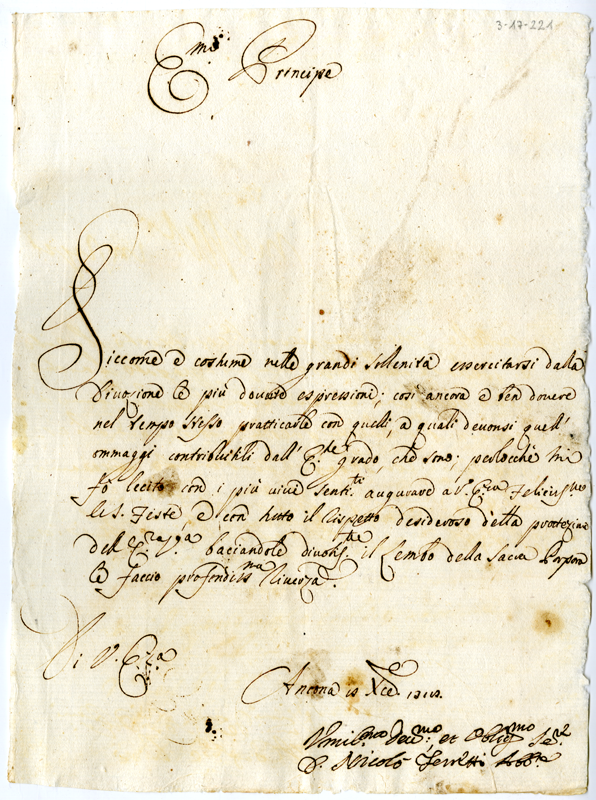 3-17-221
Em.mo Principe
Siccome è costume nelle grandi sollenità essercitarsi dalla
Divozione le più dovute espressioni; così ancora è ben dovere
nel tempo stesso pratticarle con quelli, a quali devonsi quell'
ommaggi contribuibili dall' grado, che sono; perlocchè mi
fò lecito con i più vivi senti.ti augurare a V. Em.za feliciss.me
le S. Feste e con tutto il rispetto desideroso della protezione
dell' baciandole divot.te il Lembo della Sacra Porpora
le faccio profondiss.ma riverza
Di V. Em.za
Ancona Xbre
Umiliss.mo Dev.mo, et Oblig.mo Se.re
Nicolò Ferretti